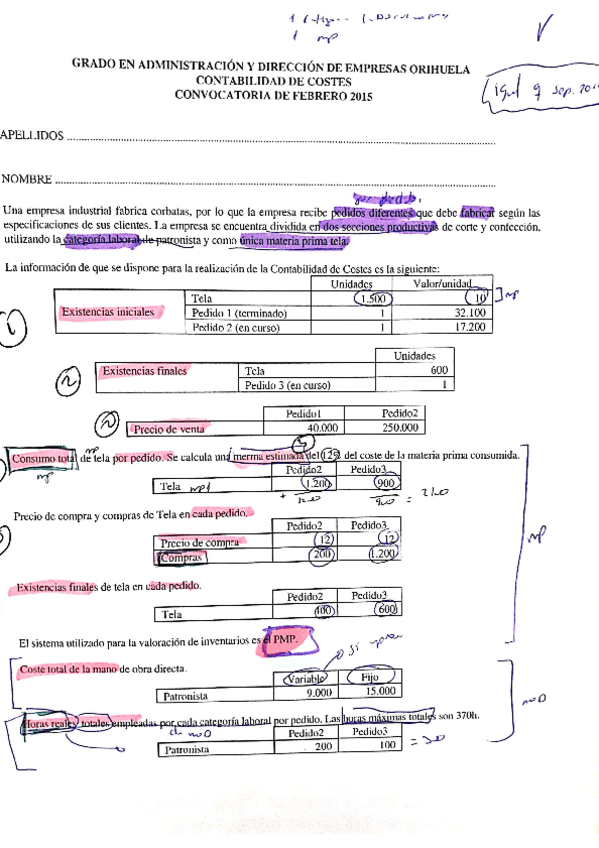 1 mp
GRADO EN ADMINISTRACIÓN Y DIRECCIÓN DE EMPRESAS ORIHUELA
CONTABILIDAD DE COSTES
CONVOCATORIA DE FEBRERO 2015
igual q sep.
APELLIDOS
NOMBRE
por pedido.
Una empresa industrial fabrica corbatas, por lo que la empresa recibe pedidos diferentes que debe fabricar según las
especificaciones de sus clientes. La empresa se encuentra dividida en dos secciones productivas de corte y confección,
utilizando la categoría laboral de patronista y como única materia prima tela.
La información de que se dispone para la realización de la Contabilidad de Costes es la siguiente:
Unidades Valor/unidad
Existencias iniciales Tela 1.500 10 mp
Pedido 1 (terminado) 1 32.100
Pedido 2 (en curso) 1 17.200
1
Unidades
2 Existencias finales Tela 600
Pedido 3 (en curso) 1
Pedido1 Pedido2
Precio de venta 40.000 250.000
mp
Consumo total de tela por pedido. Se calcula una merma estimada del 12% del coste de la materia prima consumida.
mp
Pedido2 Pedido3
Tela mp1 1.200 900
Precio de compra y compras de Tela en cada pedido.
Pedido2 Pedido3
Precio de compra 12 12
Compras 200 1.200
mp
Existencias finales de tela en cada pedido.
Pedido2 Pedido3
Tela 400 600
El sistema utilizado para la valoración de inventarios es el PMP.
Coste total de la mano de obra directa.
Variable Fijo
Patronista 9.000 15.000
moD
Horas reales totales empleadas por cada categoría laboral por pedido. Las horas máximas totales son 370h.
de moD
Pedido2 Pedido3
Patronista 200 100